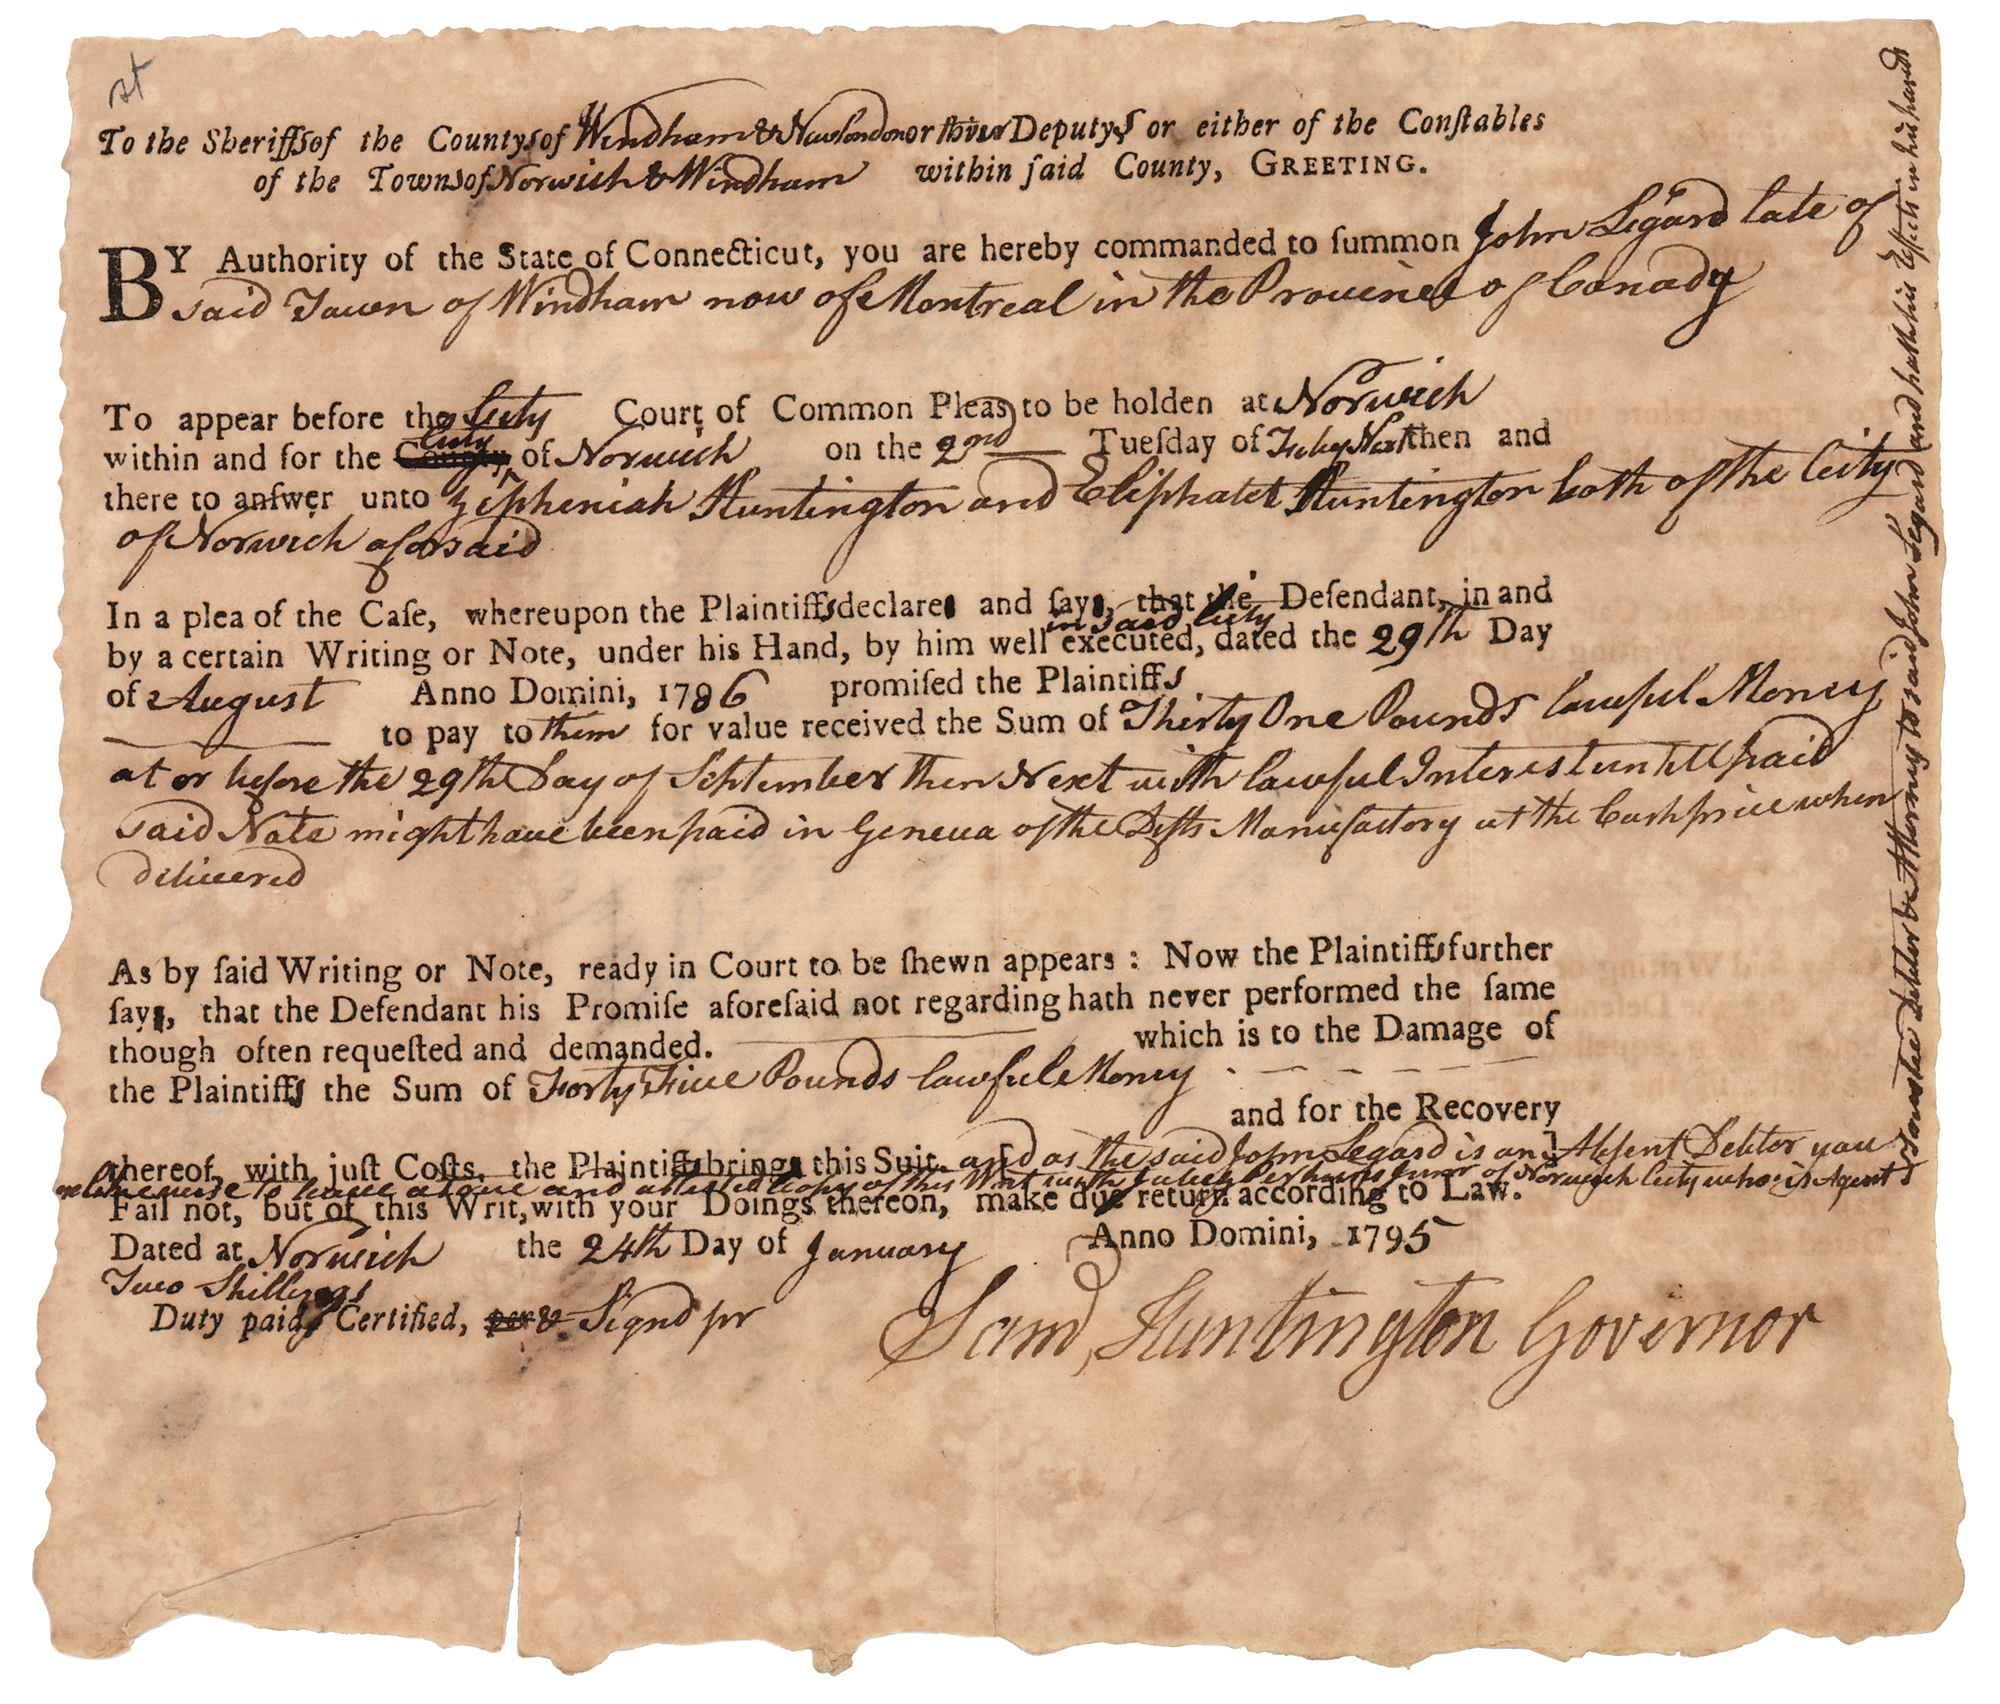 st
To the Sheriffs of the Countys of Windham & Newlondon or thier Deputys or either of the Conſtables
of the Towns of Norwich & Windham within ſaid County, GREETING.
BY Authority of the State of Connecticut, you are hereby commanded to ſummon John Legard late of
said Town of Windham now of Montreal in the Province of Canady
To appear before the City Court of Common Pleas to be holden at Norwich
City
within and for the County of Norwich on the 2nd Tueſday of July Next then and
there to anſwer unto Zipheniah Huntington and Eliphalet Huntington both of the City
of Norwich aforsaid
In a plea of the Caſe, whereupon the Plaintiffs declare and ſay, that the Defendant, in and
in said City
by a certain Writing or Note, under his Hand, by him well executed, dated the 29th Day
of August Anno Domini, 1786 promiſed the Plaintiffs
to pay to them for value received the Sum of Thirty One Pounds lawful Money
at or before the 29th Day of September then Next with lawful Interest untill paid
said Note might have been paid in Geneva of the Defts Manufactory at the Cash price when
delivered
As by ſaid Writing or Note, ready in Court to be ſhewn appears: Now the Plaintiffs further
ſay, that the Defendant his Promiſe aforeſaid not regarding hath never performed the ſame
though often requeſted and demanded. which is to the Damage of
the Plaintiffs the Sum of Forty Five Pounds lawful Money
and for the Recovery
thereof, with juſt Coſts, the Plaintiffs bring this Suit. and as the said John Legard is an Absent Debtor you
to leave a true and attested Copy of this Writ with Perkins Junor of Norwich City who is Agent
Fail not, but of this Writ, with your Doings thereon, make due return according to Law.
Dated at Norwich the 24th Day of January Anno Domini, 1795
Two Shillings
Duty paid, Certified, per & Signd pr
Samd, Huntington Governor
Debtor be Attorney to said John Legard and hath his Effects in his hands